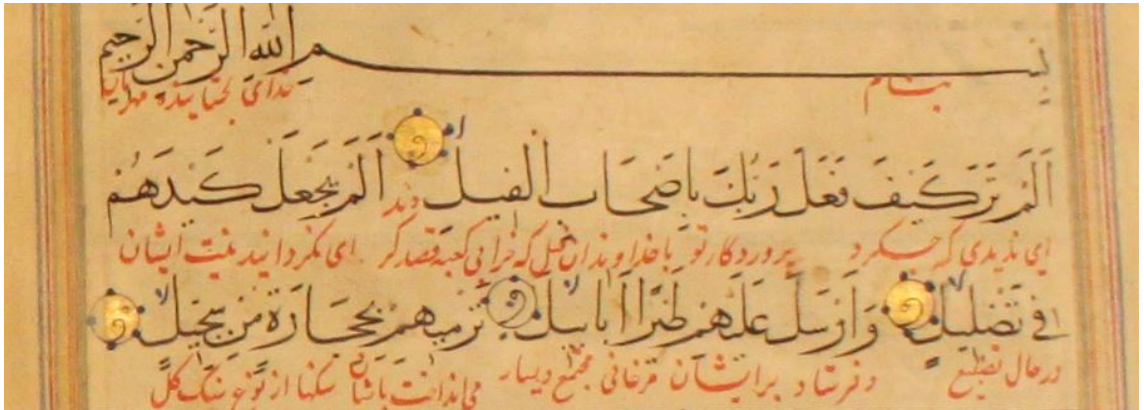 بسم الله الرحمن الرحيم
بنام خدای بخشاینده مهربان
اَلَمْ تَرَ كَيْفَ فَعَلَ رَبُّكَ بِاَصْحَابِ الْفِيلِ اَلَمْ يَجْعَلْ كَيْدَهُمْ
ای ندیدی که چکرد پروردگار تو با خداوندان فیل که خرابی کعبه قصد کردند ای نگردانید نیت ایشان
فِي تَضْلِيلٍ وَاَرْسَلَ عَلَيْهِمْ طَيْرًا اَبَابِيلَ تَرْمِيهِمْ بِحِجَارَةٍ مِنْ سِجِّيلٍ
در حال تضییع و فرستاد بر ایشان مرغانی مجتمع و بسیار می انداخت بایشان سنگها از نوع سنگ گل